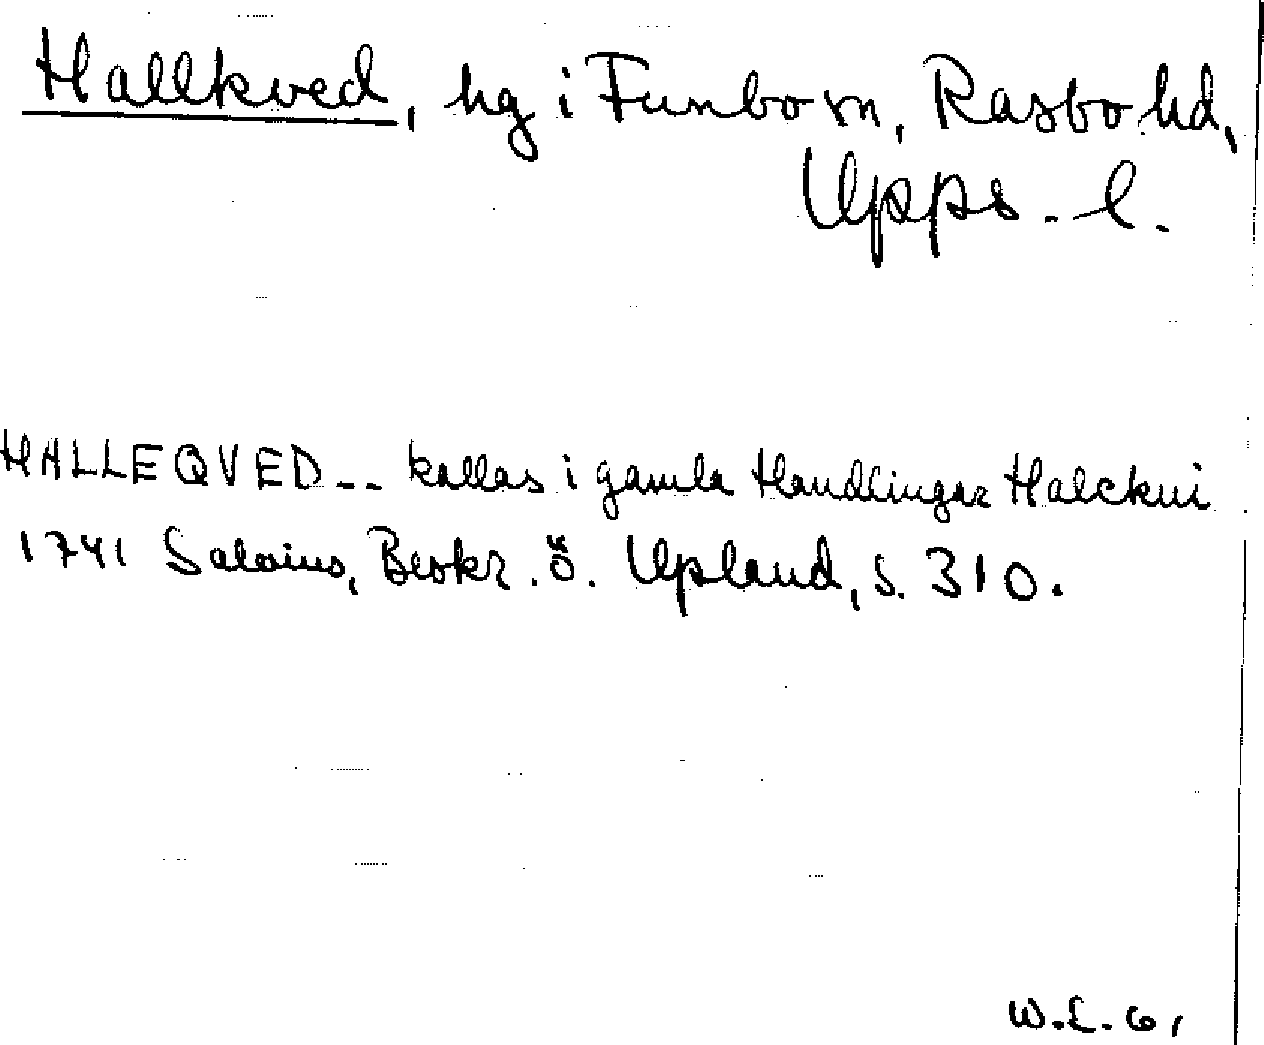 Hallkved, hg i Funbo sn, Rasbo hd,
Upps. l.
HALLEQVED -- kallas i gamla Handlingar Halckui
1741 Salvius, Beskr. ö. Upland, s. 310.